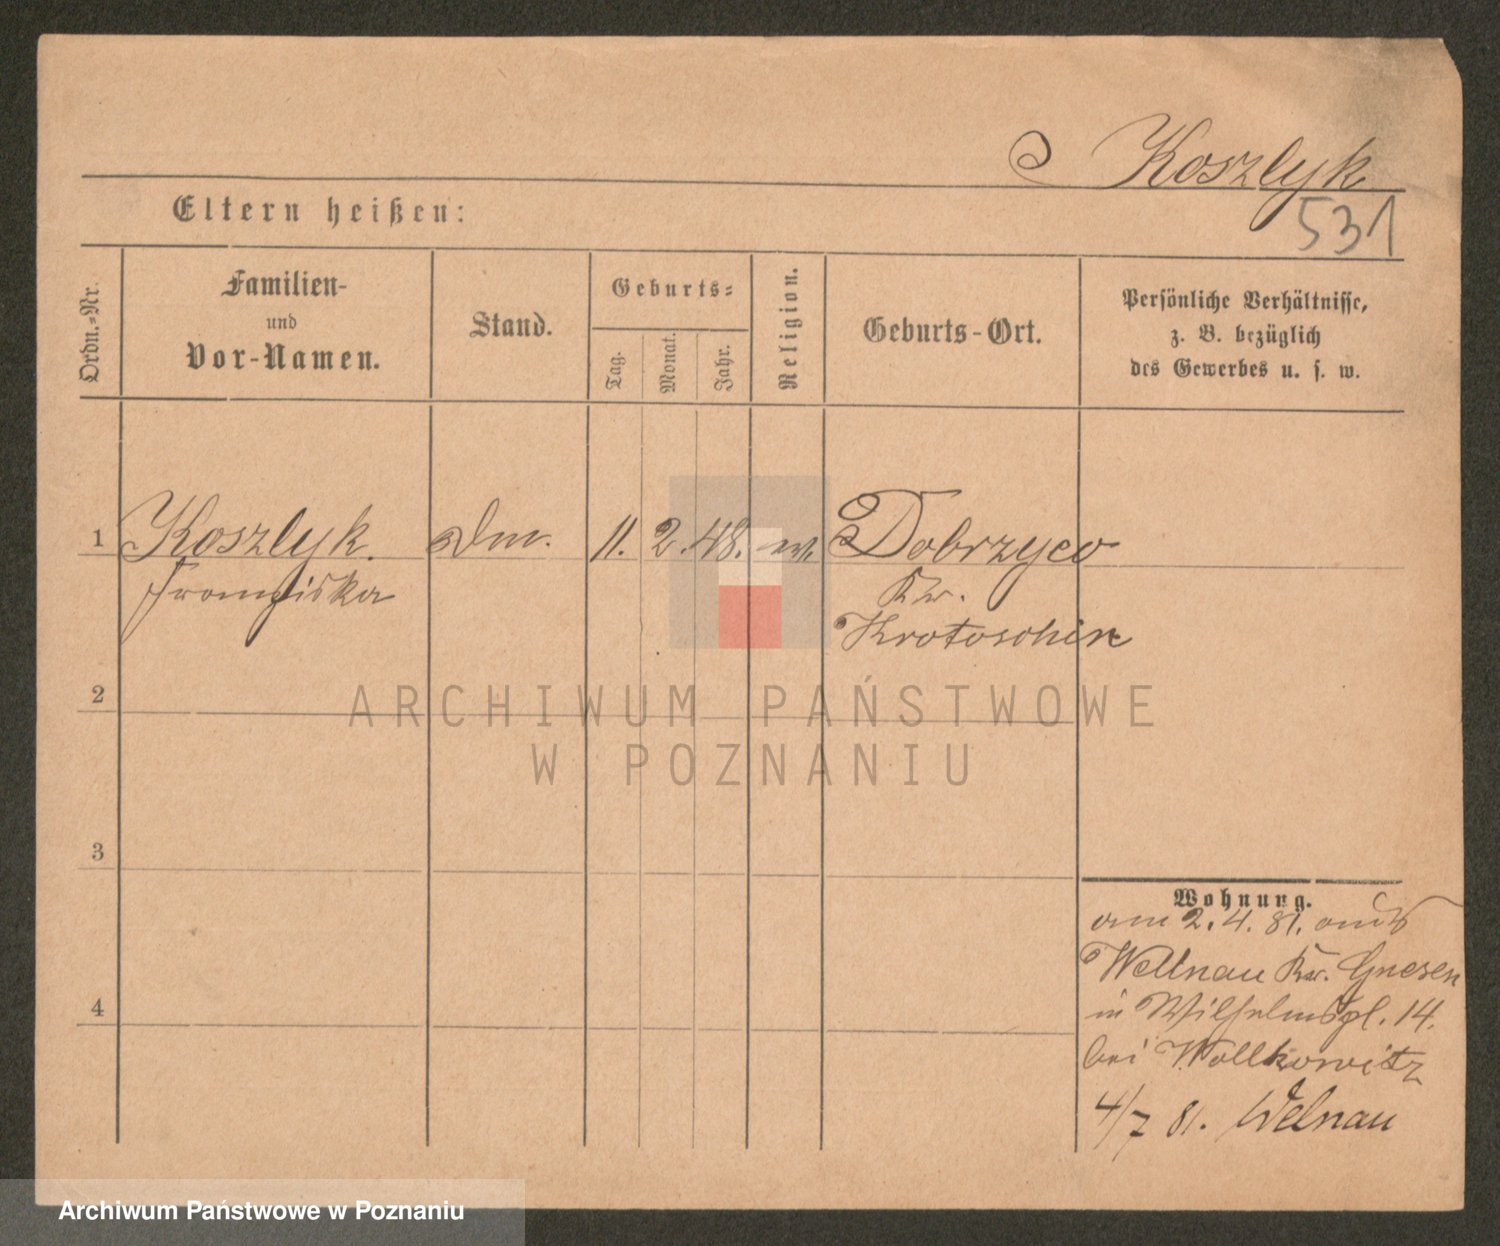 Koszlyk
531
Eltern heißen:
Ordn.-Nr.
Familien-
und
Vor-Namen.
Stand.
Geburts-
Tag.
Monat.
Jahr.
Religion.
Geburts-Ort.
Persönliche Verhältnisse,
z. B. bezüglich
des Gewerbes u. s. w.
1
Koszlyk. 11. 2. 48. Dobrzyca
Franziska Kr.
Krotoschin
2
3
4
Wohnung.
am 2. 4. 81. aus
Wellnau Kr. Gnesen
in Wilhelmspl. 14.
bei Wollkowitz
4/7 81. Welnau
ARCHIWUM PAŃSTWOWE
W POZNANIU
Archiwum Państwowe w Poznaniu